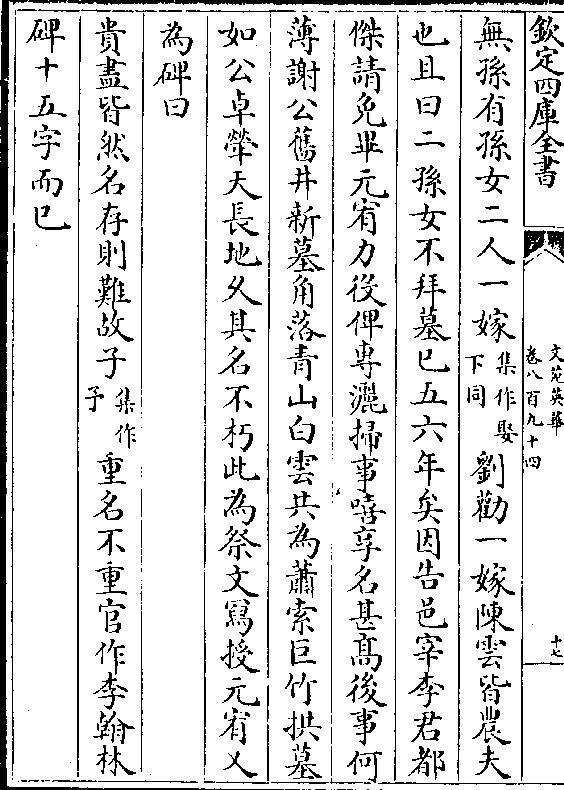 欽定四庫全書
文苑英華
卷八百九十四
十七
無孫有孫女二人一嫁集作娶下同劉勸一嫁陳雲皆農夫
也且曰二孫女不拜墓已五六年矣因告邑宰李君都
傑請免畢元宥力役俾專灑掃事嘻享名甚髙後事何
薄謝公舊井新墓角落青山白雲共為蕭索巨竹拱墓
如公卓犖天長地久其名不朽此為祭文寫授元宥又
為碑曰
貴盡皆然名存則難故予集作子重名不重官作李翰林
碑十五字而已